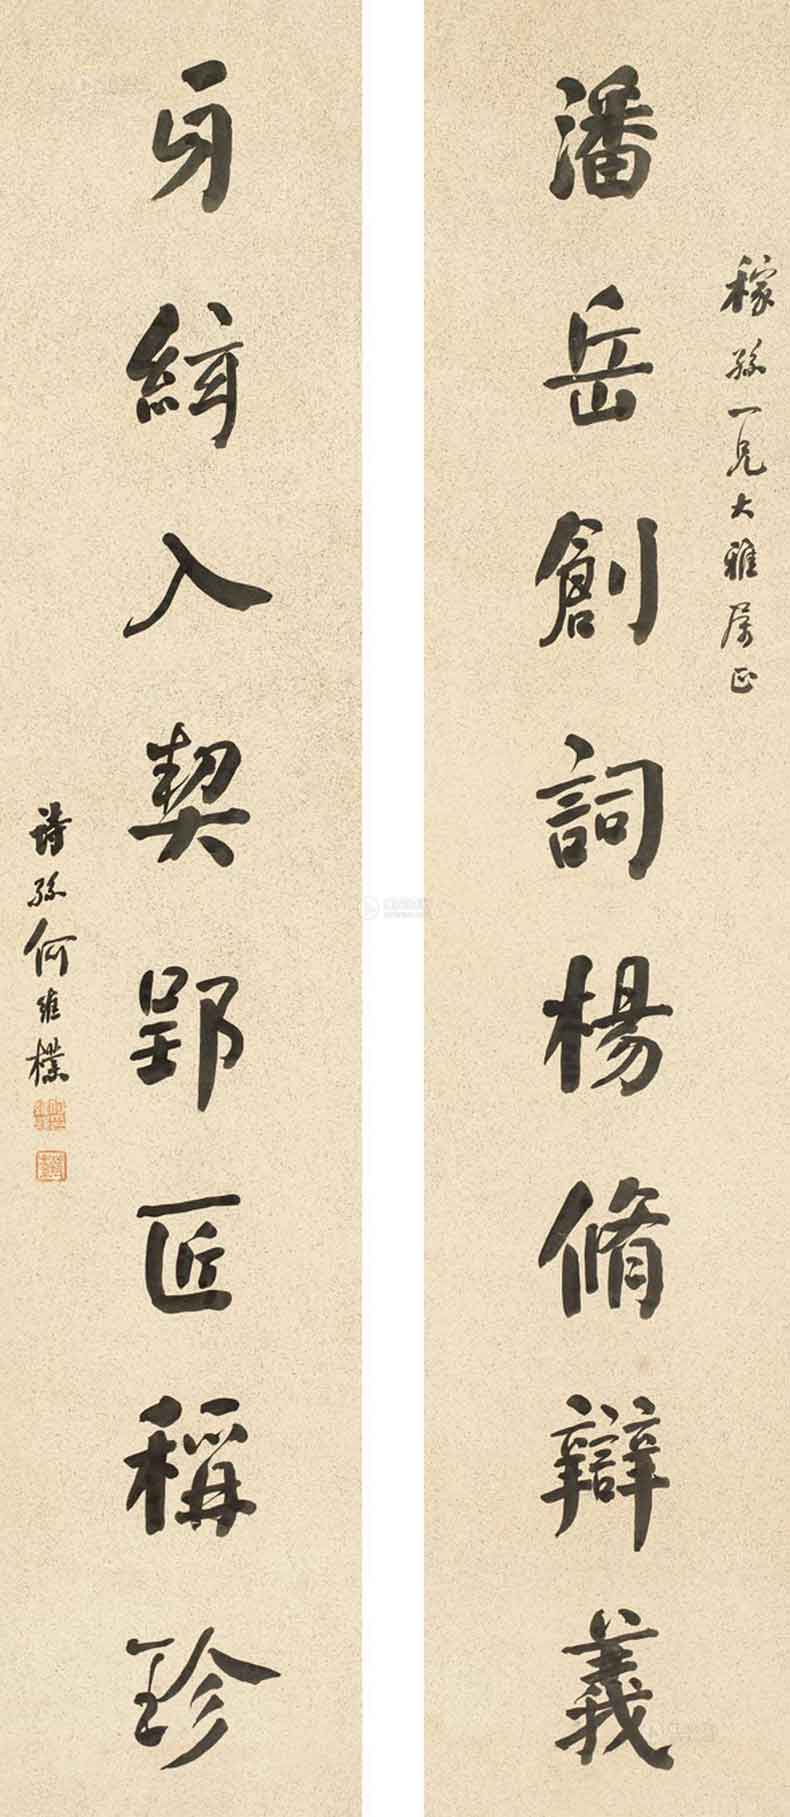 潘岳創詞楊脩辯義
稼孫一兄大雅属正
牙入契郢匠稱珍
詩孫何維樸